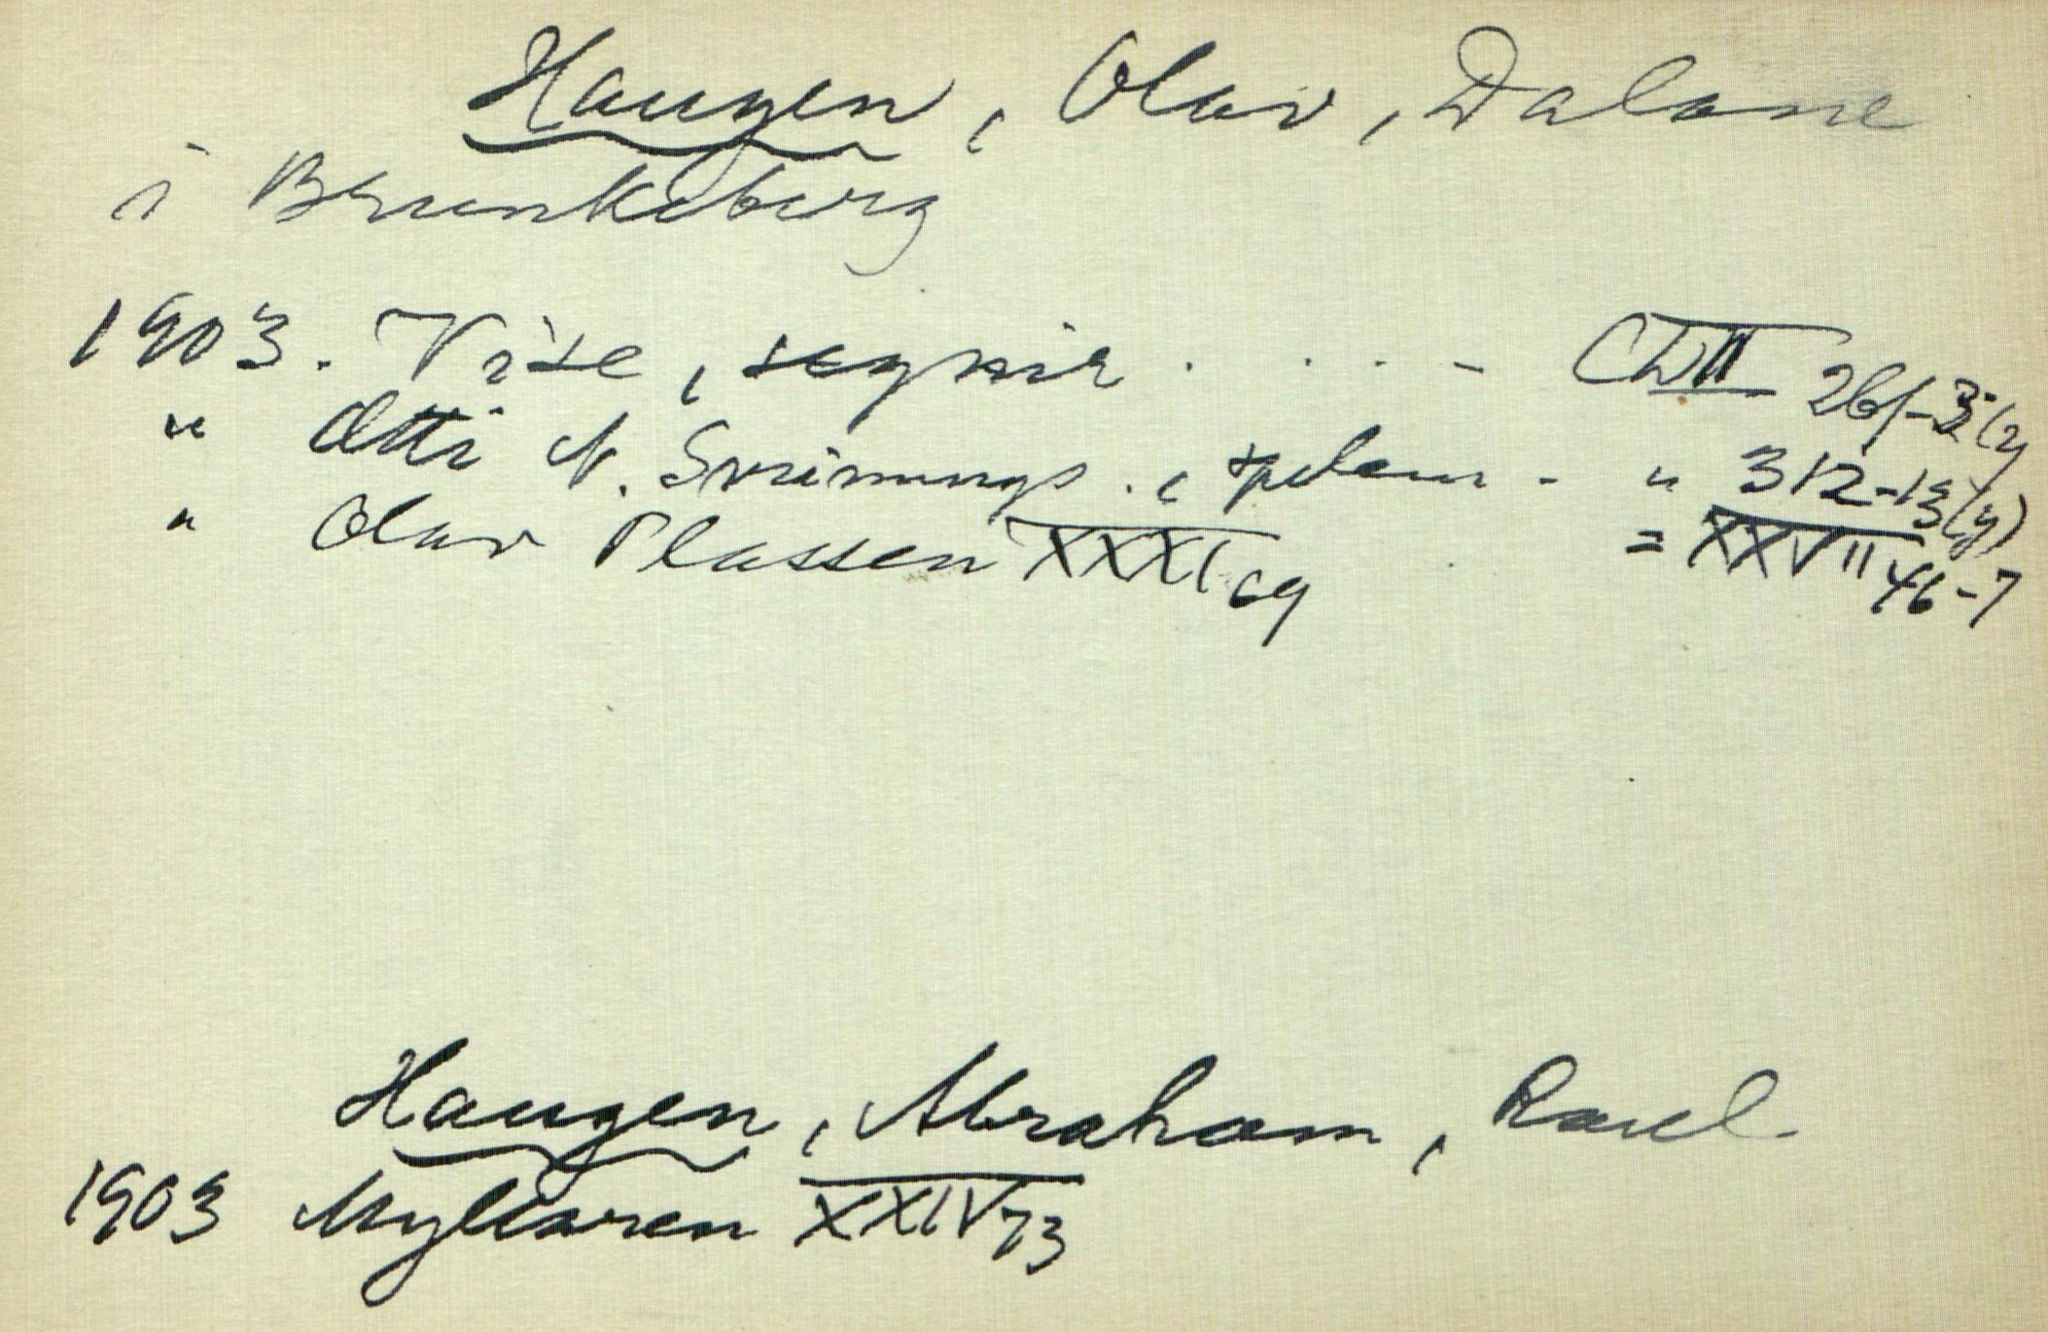 Haugen, Olav, Dalane
i Brunkeberg
1903. Vise, segner . . . - CWII 261-3 (y
" Ætti N. Sveinungs., spelem - " 312-13 (y)
" Olav Plassen XXXI 69 = XXVII 46-7
Haugen, Abraham,
1903 Myllaren XXIV 73